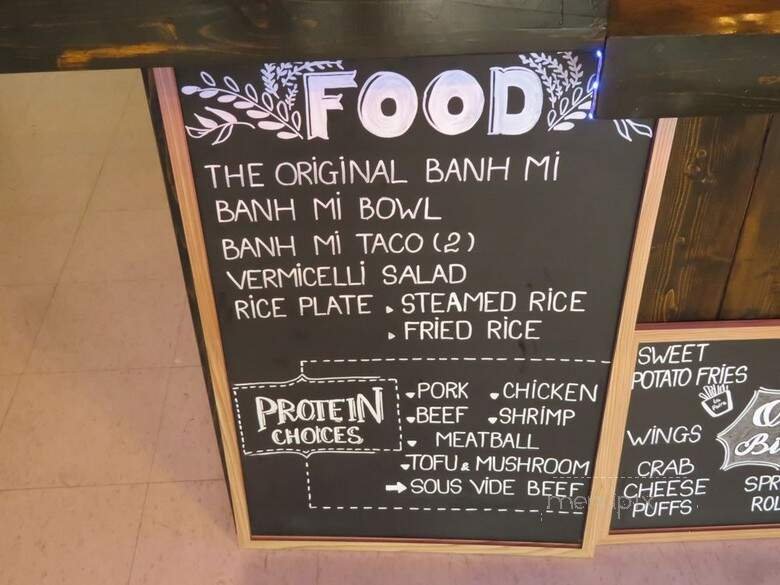 FOOD
THE ORIGINAL BANH MI
BANH MI BOWL
BANH MI TACO (2)
VERMICELLI SALAD
RICE PLATE • STEAMED RICE
• FRIED RICE
PROTEIN
CHOICES
PORK CHICKEN
BEEF SHRIMP
MEATBALL
TOFU & MUSHROOM
→ SOUS VIDE BEEF
SWEET
POTATO FRIES
WINGS
CRAB
CHEESE
PUFFS
SPR
ROL